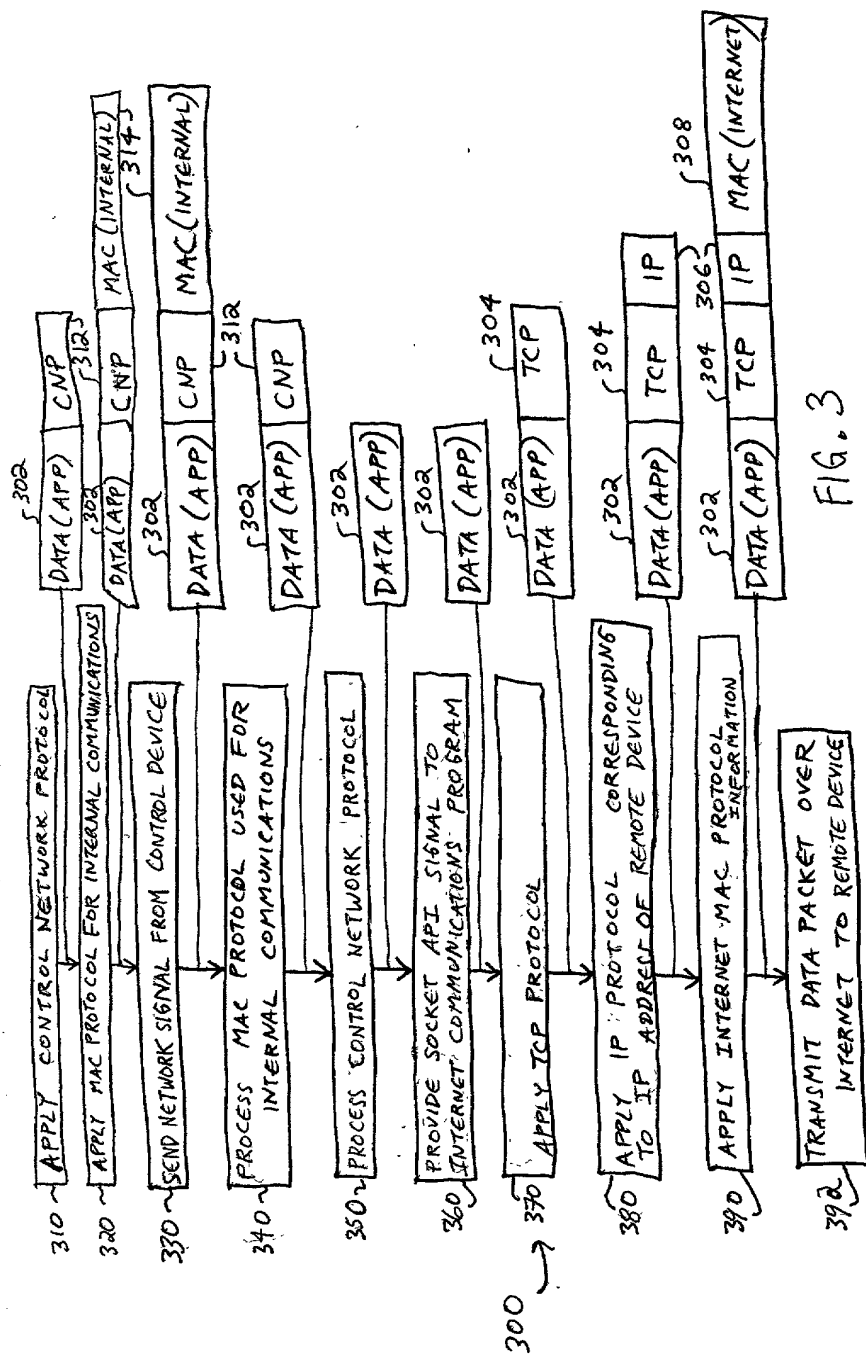 310 APPLY CONTROL NETWORK PROTOCOL
302
DATA (APP) CNP
320 APPLY MAC PROTOCOL FOR INTERNAL COMMUNICATIONS
302 312
DATA (APP) CNP MAC (INTERNAL)
314
330 SEND NETWORK SIGNAL FROM CONTROL DEVICE
302
DATA (APP) CNP MAC (INTERNAL)
312
340 PROCESS MAC PROTOCOL USED FOR
INTERNAL COMMUNICATIONS
302
DATA (APP) CNP
350 PROCESS CONTROL NETWORK PROTOCOL
302
DATA (APP)
360 PROVIDE SOCKET API SIGNAL TO
INTERNET COMMUNICATIONS PROGRAM
302
DATA (APP)
300
370 APPLY TCP PROTOCOL
302 304
DATA (APP) TCP
380 APPLY IP PROTOCOL CORRESPONDING
TO IP ADDRESS OF REMOTE DEVICE
302 304
DATA (APP) TCP IP
306
390 APPLY INTERNET MAC PROTOCOL
INFORMATION
302 304 308
DATA (APP) TCP IP MAC (INTERNET)
392 TRANSMIT DATA PACKET OVER
INTERNET TO REMOTE DEVICE
FIG. 3